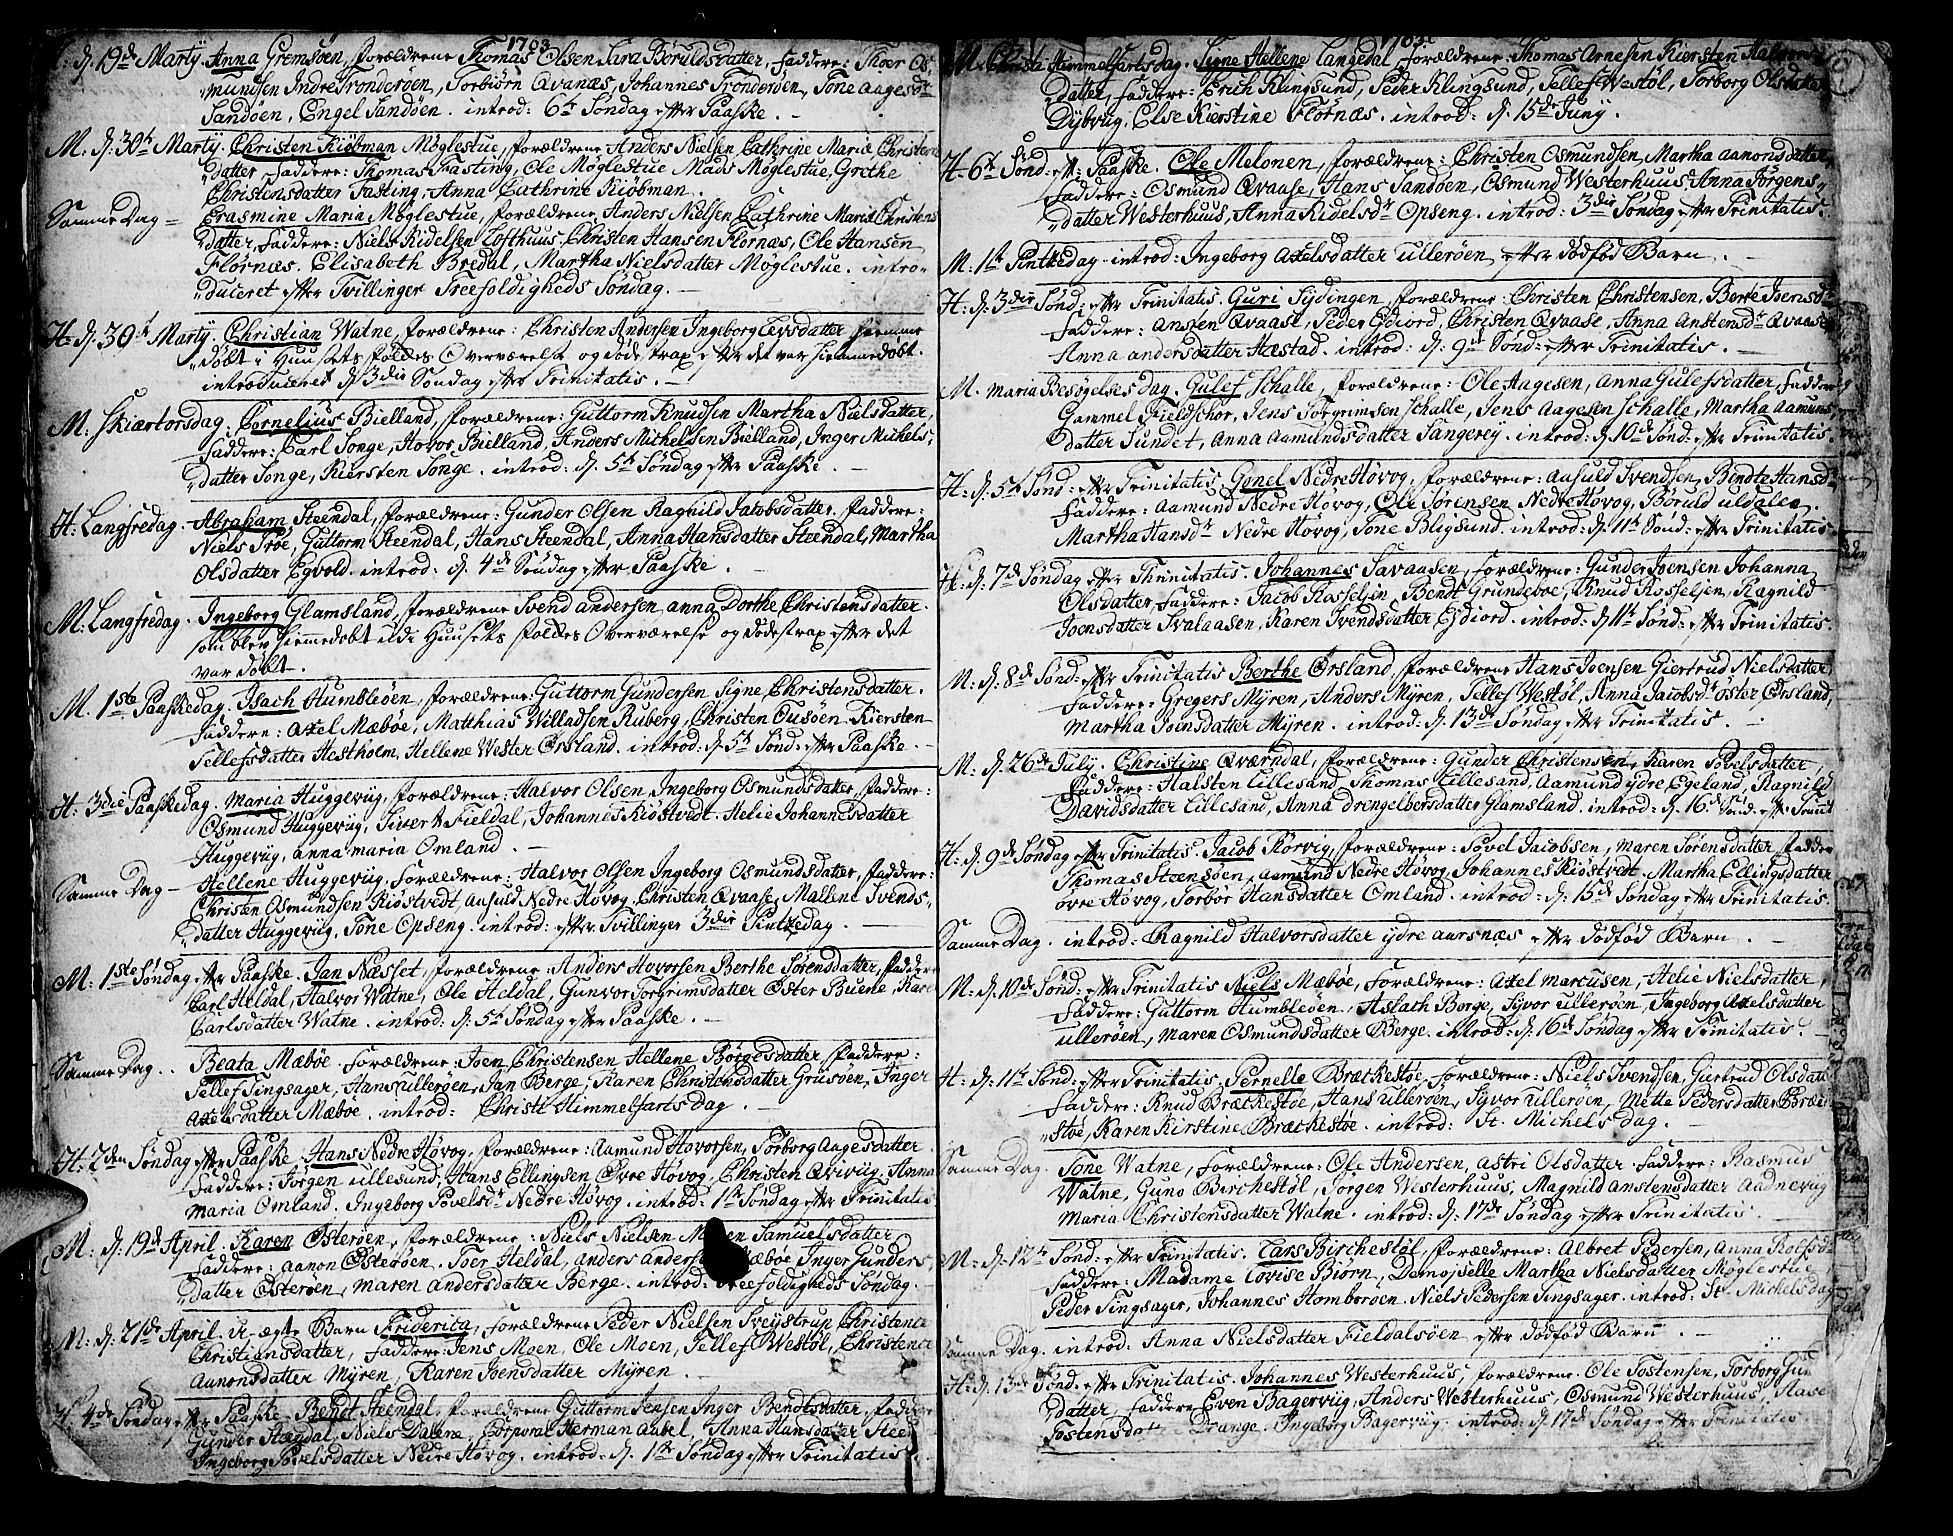 1763
d. 19de Marty. Anna Gremsøen, forældrene Thomas Olsen Sara Børuldsdatter, Faddere: Thoer Os-
mundsen Indre Tronderøen, Torbiørn Qvanæs, Johannes Tronderøen, Tone Aagesdtr
Sandøen, Engel Sandøen. introd: 6te Søndag efter Paaske.
M. d. 30te Marty. Christen Kiøbman Møglestue, forældrene Anders Nielsen Cathrine Marie Christens
datter, Faddere: Thomas Fasting, Ole Møglestue Mads Møglestue, Grethe
Christensdatter Fasting, Anna Cathrine Kiøbman.
Samme Dag = Erasmine Maria Møglestue, forældrene Anders Nielsen Cathrine Marie Christens
datter, Faddere: Niels Ridelsen Lofthuus, Christen Hansen Flørnæs, Ole Hansen
Flørnæs. Elisabeth Bredal, Martha Nielsdatter Møglestue. intro-
duceret efter Tvillinger Treefoldigheds Søndag.
H. d. 30te Marty. Christian Watne, forældrene: Christen Andersen Ingeborg Levsdatter hiemme
døbt i Huusets folkes Overværelse og døde strax efter det var hiemmedøbt.
introduceret d. 3die Søndag efter Trinitatis.
M. Skiærtorsdag. Cornelius Bielland, forældrene: Guttorm Knudsen Martha Nielsdatter,
Faddere: Carl Songe, Hovor Bielland, Anders Michelsen Bielland, Inger Mickels-
datter Songe, Kiersten Songe. introd: d. 5te Søndag efter Paaske.
H. Langfredag. Abraham Steendal, forældrene: Gunder Olsen Ragnild Jacobsdatter, Faddere:
Niels Trøe, Guttorm Steendal, Hans Steendal, Anna Hansdatter Steendal, Martha
Olsdatter Egvold. introd: d. 4de Søndag efter Paaske.
M. Langfredag. Ingeborg Glamsland, forældrene Svend Andersen, Anna Dorthe Christensdatter.
som blev hiemedøbt i Huusets folkes Overværelse og døde strax efter det
var døbt.
M. 1ste Paaskedag. Isach Humbleøen, forældrene: Guttorm Gundersen Signe Christensdatter.
Faddere: Axel Mæbøe, Matthias Willadsen Ruberg, Christen Tusøen Kiersten
Tellefsdatter Hestholm, Hellene Wester Ørsland. introd: d. 5te Sønd: efter Paaske.
H. 3die Paaskedag. Maria Huggeviig, forældrene: Halvor Olsen, Ingeborg Osmundsdatter, Faddere:
Osmund Huggeviig, Sivert Fieldal, Johannes Kiøstvedt. Helie Johannesdatter
Huggeviig, Anna Maria Omland.
Samme Dag - Hellene Huggeviig, forældrene: Halvor Olsen Ingeborg Osmundsdatter, Faddere:
Christen Osmundsen Kiøstvedt, Ausuld Nedre Høvog, Christen Qvaase, Mallene Svends-
datter Huggeviig, Tone Opseng. introd: efter Tvillinger 3die Pintzedag.
M. 1ste Søndag efter Paaske. Jan Næsset, forældrene: Anders Hovorsen Berthe Sørensdatter, Faddere
Carl Heldal, Halvor Watne, Ole Heldal, Gunvor Torgrimsdatter Øster Buene, Kare
Carlsdatter Watne. introd: d. 5te Søndag efter Paaske.
Samme Dag. Beata Mæbøe. forældrene: Joen Christensen Hellene Børgesdatter, Faddere:
Tellef Tingsager, Hans Ullerøen, Jan Berge, Karen Christensdatter Grusøen, Inger
Axelsdatter Mæbøe. introd: Christi Himmelfarts Dag.
H. 2den Søndag efter Paaske. Hans Nedre Høvog. forældrene: Aamund Hovorsen, Torborg Aagesdatter
Faddere: Jørgen Ullesund, Hans Ellingsen Øvre Høvog, Christen Qviviig, Anna
Maria Omland. Ingeborg Povelsdr Nedre Høvog. introd: 1ste Søndag efter Trinitatis
M. d. 19de April. Karen Østerøen, forældrene: Niels Nielsen Samuelsdatter
Faddere: Aanon Østerøen. Toer Heldal, Anders Anders Mæbøe, Inger Gunders-
datter Østerøen, Maren Andersdatter Berge. introd: Treefoldigheds Søndag.
M. d. 21de April. U-ægte Barn Friderica, forældrene Peder Nielsen Sveystrup Christence
Christiansdatter, Faddere: Jens Moen, Ole Moen, Tellef Westøl, Christence
Aanonsdatter Myren, Karen Joensdatter Myren.
H. 4de Søndag efter Paaske. Bendt Steendal, forældrene Guttorm Jensen Inger Bendtsdatter, Faddere
Gunder Steendal, Niels Dalene, Corporal Herman Aabel, Anna Hansdatter Steen
Ingeborg Povelsdatter Nedre Høvog. introd: d. 1ste Søndag efter Trinitatis.
1763
M. Christi Himmelfartsdag. Signe Hellene Langedal, forældrene: Thomas Arnesen Kiersten Halvors
datter, Faddere: Erich Klingsund, Peder Klingsund, Tellef W-støl, Torborg Olsdatter
Dybvug, Else Kierstine Flörnæs. introd: d. 15de Juny.
H. 6te Sønd: eft: Paaske. Ole Melonen, forældrene: Christen Osmundsen, Martha Aanonsdatter,
Faddere: Osmund Qvaase, Hans Sandøen, Osmund Westerhuus Anna Jørgens-
datter Westerhuus, Anna Ridelsdr Opseng. introd: 3die Søndag efter Trinitatis.
M. 1te Pintzedag introd: Ingeborg Axelsdatter Ullerøen efter dødfød Barn.
H. d. 3die Sønd: efter Trinitatis. Guri Sydingen, forældrene: Christen Christensen, Berte Joensdr
Faddere: Ansten Qvaase, Peder Esdiord, Christen Qvaase, Anna Anstensdr Qvaase
Anna Andersdatter Hæstad. introd: d: 9de Sønd: efter Trinitatis.
M. Maria Besøgelses Dag. Gulef Schalle, forældrene: Ole Aagesen, Anna Gulefsdatter, Faddere
Gammel Fieldschor, Jens Torgrimsen Schalle, Jens Aagesen Schalle, Martha Aamunds
datter Sundet, Anna Aamundsdatter Sangerey. introd: d. 10de Sønd: efter Trinitatis.
H. d. 5te Sønd: efter Trinitatis. Gonel Nedre Høvog, forældrene: Ausuld Svendsen, Bendte Hansdr
Faddere: Aamund Nedre Høvog, Ole Sørensen Nedre Høvog, Børuld Uldalen.
Martha Hansdr Nedre Høvog, Tone Bligsund. introd: d. 11te Sønd: efter Trinitatis
H. d. 7de Søndag efter Thrinitatis. Johannes Savaasen, forældrene: Gunder Joensen Johanna
Olsdatter, Faddere: Jacob Rosseljen, Bendt Grundeboe, Knud Rosseljen, Ragnild
Joensdatter Svalaasen, Karen Svendsdatter Esdiord. introd: d. 11te Sønd: efter Trinitatis.
M. d. 8de Sønd: efter Trinitatis Berthe Ørsland, forældrene Hans Joensen Giertrud Nielsdatter,
Faddere: Gregers Myren, Anders Myren, Tellef Westøl, Anna Jacobsdr Øster Ørsland,
Martha Joensdatter Myren. introd: d. 13de Søndag efter Trinitatis.
M. d. 26de July. Christine Qværndal, forældrene: Gunder Christensen, Karen Povelsdatter
Faddere: Halsten Lillesand, Thomas Lillesand, Aamund Ydre Egeland, Ragnild
Davidsdatter Lillesand, Anna Drengelbersdatter Glamsland. introd: d. 16de Sønd: efter Trinit
H. d. 9de Søndag efter Trinitatis. Jacob Kørvig, forældrene: Povel Jacobsen, Maren Sørensdatter, Fadder
Thomas Steensøen, Aamund Nedre Høvog, Johannes Kiøstvedt. Martha Ellingsdatter
Øvre Høvog, Torbor Hansdatter Omland. introd: d: 15de Søndag efter Trinitatis.
Samme Dag. introd: Ragnild Halvorsdatter Ydre Aarsnæs efter dødfød Barn.
M. d. 10de Sønd: efter Trinitatis Niels Mæbøe, forældrene: Axel Marcusen, Helie Nielsdatter,
Faddere: Guttorm Humbleøen, Aslach Berge, Syvor Ullerøen, Ingeborg Axelsdatter
Ullerøen, Maren Osmundsdatter Berge. introd: d. 16de Søndag efter Trinitatis.
H. d. 11te Sønd: efter Trinitatis. Pernelle Bræckestøe, forældrene: Niels Svendsen, Giertrud Olsdatt
Faddere: Knud Bræckestøe, Hans Ullerøen, Syvor Ullerøen, Mette Pedersdatter Bræcke-
støe, Karen Kirstine Bræckestøe. introd: St. Michels Dag.
Samme Dag. Tone Watne, forældrene: Ole Andersen, Astri Olsdatter. Faddere: Rasmus
Watne, Guno Birchestøl, Jørgen Westerhuus, Magnild Anstensdatter Aadnevug
Maria Christensdatter Watne. introd: d: 17de Søndag efter Trinitatis.
M. d. 12te Sønd: efter Trinitatis. Lars Birchestøl, forældrene: Albret Pedersen, Anna Rolfsd
Faddere: Madame Lovise Biørn, Demojselle Martha Nielsdatter Møglestue
Peder Tingsager, Johannes Homborøen. Niels Pedersen Tingsager. introd: St. Michels dag
Samme Dag. introd: Anna Nielsdatter Fieldalsøen efter dødfød Barn.
H. d. 13de Sønd: efter Trinitatis. Johannes Westerhuus, forældrene. Ole Tostensen, Torborg Gun
datter, Faddere Even Bagervug, Anders Westerhuus, Osmund Westerhuus, Aase
Tostensd Drange. Ingeborg Bagervug. introd: d. 17de Søndag efter Trinitatis